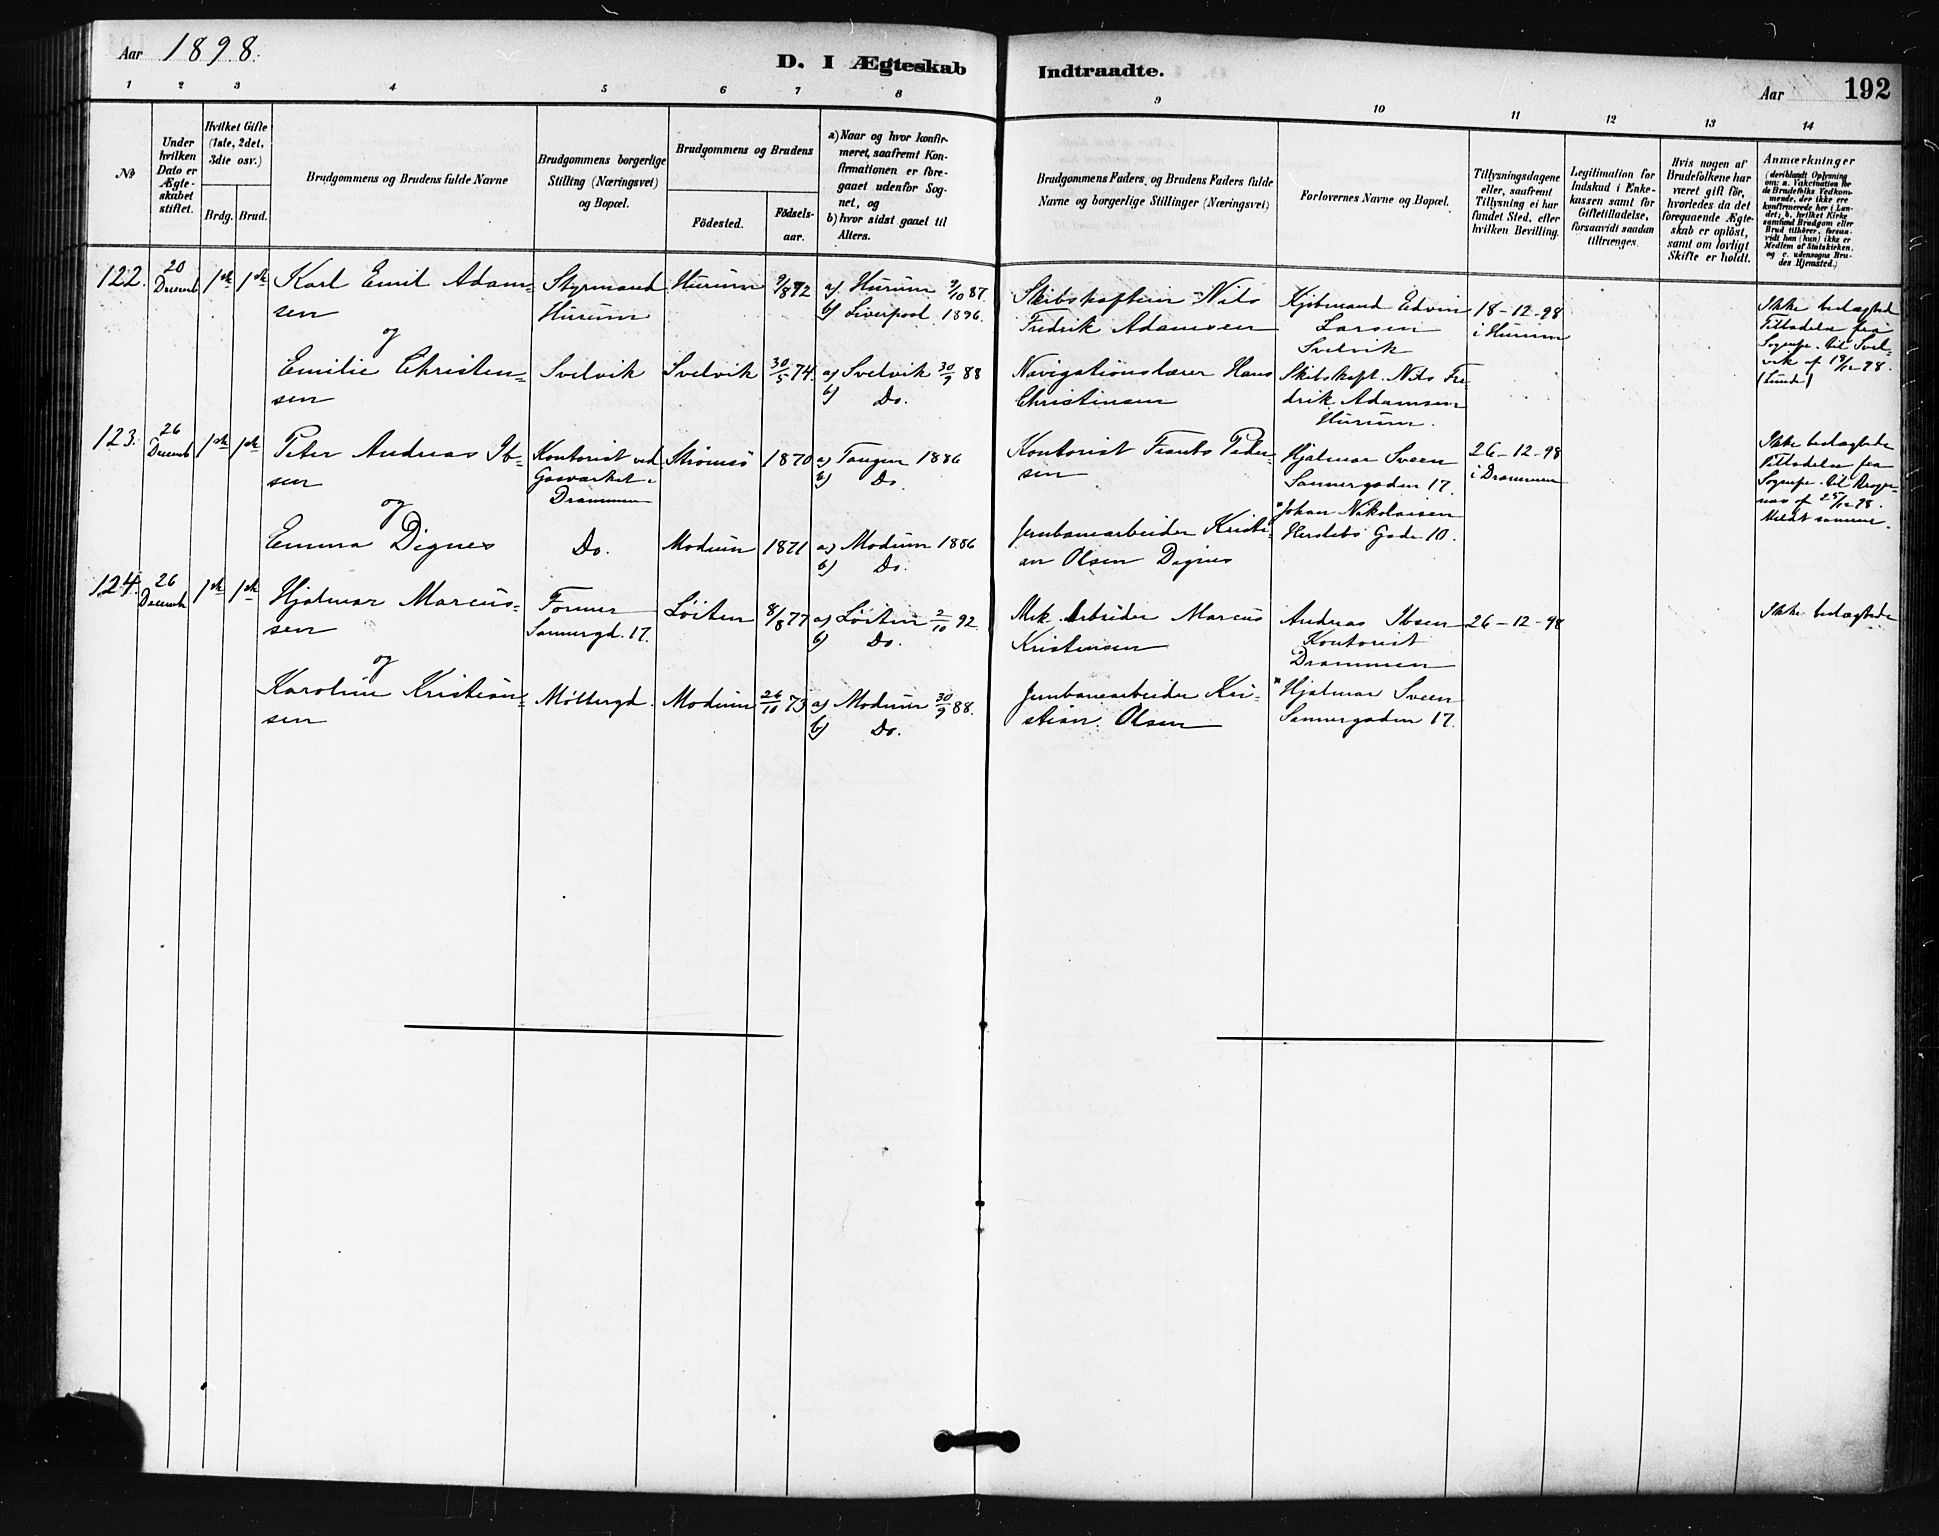 Aar 1898.
D. I Ægteskab
Indtraadte.
Aar
192
1 2 3 4 5 6 7 8 9 10 11 12 13 14
№
Under
hvilken
Dato er
Ægte-
skabet
stiftet.
Hvilket Gifte
(1ste, 2det,
3die osv.)
Brdg. Brud.
Brudgommens og Brudens fulde Navne
Brudgommens borgerlige
Stilling (Næringsvei)
og Bopæl.
Brudgommens og Brudens
Födested.
Födsels-
aar.
a) Naar og hvor konfir-
meret, saafremt Kon-
firmationen er fore-
gaaet udenfor Sog-
net, og
b) hvor sidst gaaet til
Alters.
Brudgommens Faders og Brudens Faders fulde
Navne og borgerlige Stillinger (Næringsvei)
Forlovernes Navne og Bopæl.
Tillysningsdagene
eller, saafremt
Tillysning ei har
fundet Sted, efter
hvilken Bevilling.
Legitimation for
Indskud i Enke-
kassen samt for
Giftetilladelse,
forsaavidt saadan
tiltrænges.
Hvis nogen af
Brudefolkene har
været gift før,
hvorledes da det
foregaaende Ægte-
skab er oplöst,
samt om lovligt
Skifte er holdt.
Anmærkninger
(deriblandt Oplysning
om: a. Vakcination for
de Brudefolks Vedkom-
mende, der ikke ere
konfirmerede her i Lan-
det; b. hvilket Kirke-
samfund Brudgom eller
Brud tilhörer, forsaa-
vidt han (hun) ikke er
Medlem af Statskirken,
og c. udensogns Bru-
des Hjemsted.)
122.
20
Decemb
1ste 1ste
Karl Emil Adam-
sen
og
Emilie Christen-
sen
Styrmand
Hurum
Svelvik
Hurum 9/8 72
Svelvik 30/5 74.
a) Hurum 9/10 87.
b) Liverpool 1896.
a) Svelvik 30/9 88
b) Do.
Skibskaptein Nils
Fredrik Adamsen
Navigationslærer Hans
Christensen
Kjøbmand Edvin
Larsen
Svelvik
Skibskapt. Nils Fre
drik Adamsen
Hurum.
18-12-98
i Hurum
Ikke beslægtede
Tilladelse fra
Sognepr. til Svel-
vik af 19/12 98.
(Lund)
123.
26
Decemb
1ste 1ste
Peter Andreas Ib-
sen
og
Emma Dignes
Kontorist ved
Gasværket i
Drammen
Do.
Strømsø 1870
Modum 1871
a) Tangen 1886
b) Do.
a) Modum 1886
b) Do.
Kontorist Frants Peder-
sen
Jernbanearbeider Kristi-
an Olsen Dignes
Hjalmar Sveen
Sannergaden 17.
Johan Nikolaisen
Herslebs Gade 10.
26-12-98
i Drammen
Ikke beslægtede
Tilladelse fra
Sognepr. til Brager-
nes af 25/12 98.
Meldt samme.
124.
26
Decemb
1ste 1ste
Hjalmar Marcus-
sen
og
Karoline Kristian-
sen
Former
Sannergd. 17.
Møllergd.
Løiten 8/8 77
Modum 26/10 73
a) Løiten 2/10 92
b) Do.
a) Modum 30/9 88.
b) Do.
Mek. Arbeider Marcus
Kristensen
Jernbanearbeider Kri-
stian Olsen
Andreas Ibsen
Kontorist
Drammen
Hjalmar Sveen
Sannergaden 17.
26-12-98
Ikke beslægtede